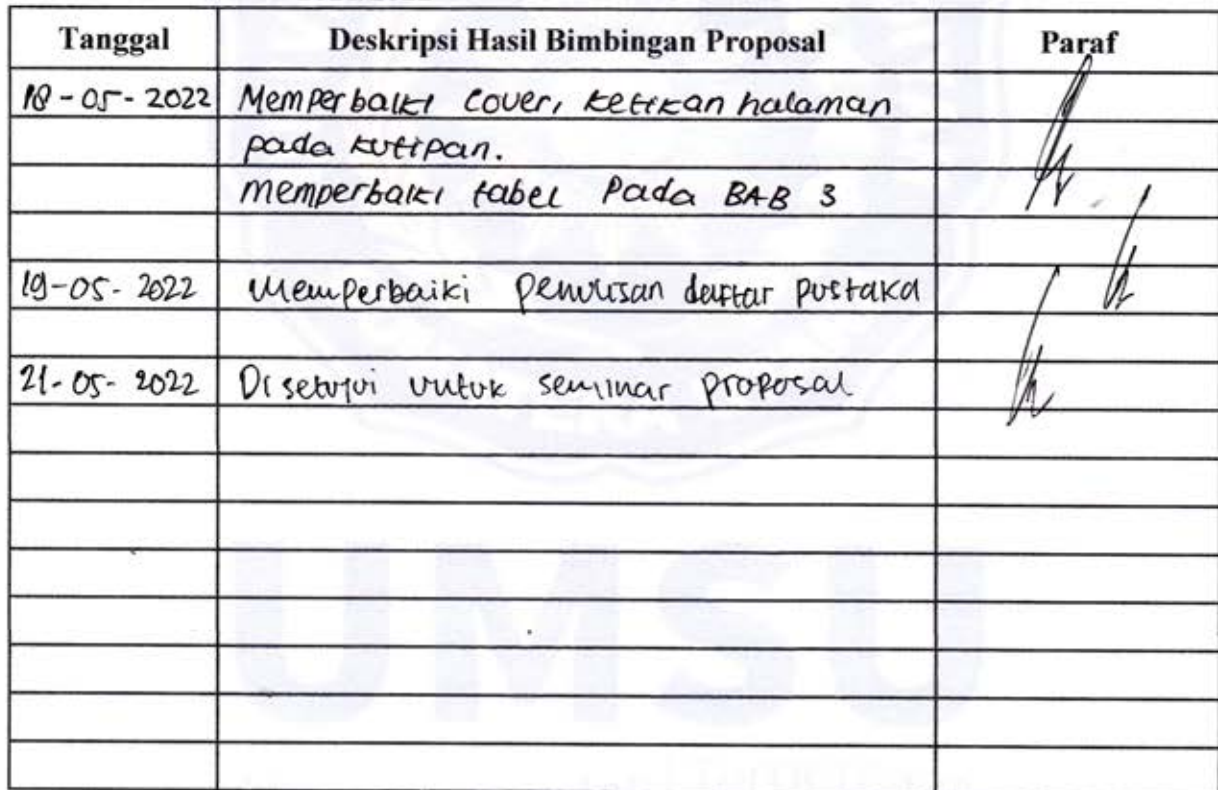 Tanggal Deskripsi Hasil Bimbingan Proposal Paraf
18-05-2022 Memperbaiki Cover, ketikan halaman
pada kutipan.
memperbaiki tabel Pada BAB 3
19-05-2022 Memperbaiki penulisan daftar pustaka
21-05-2022 Disetujui untuk seminar proposal
UMSU